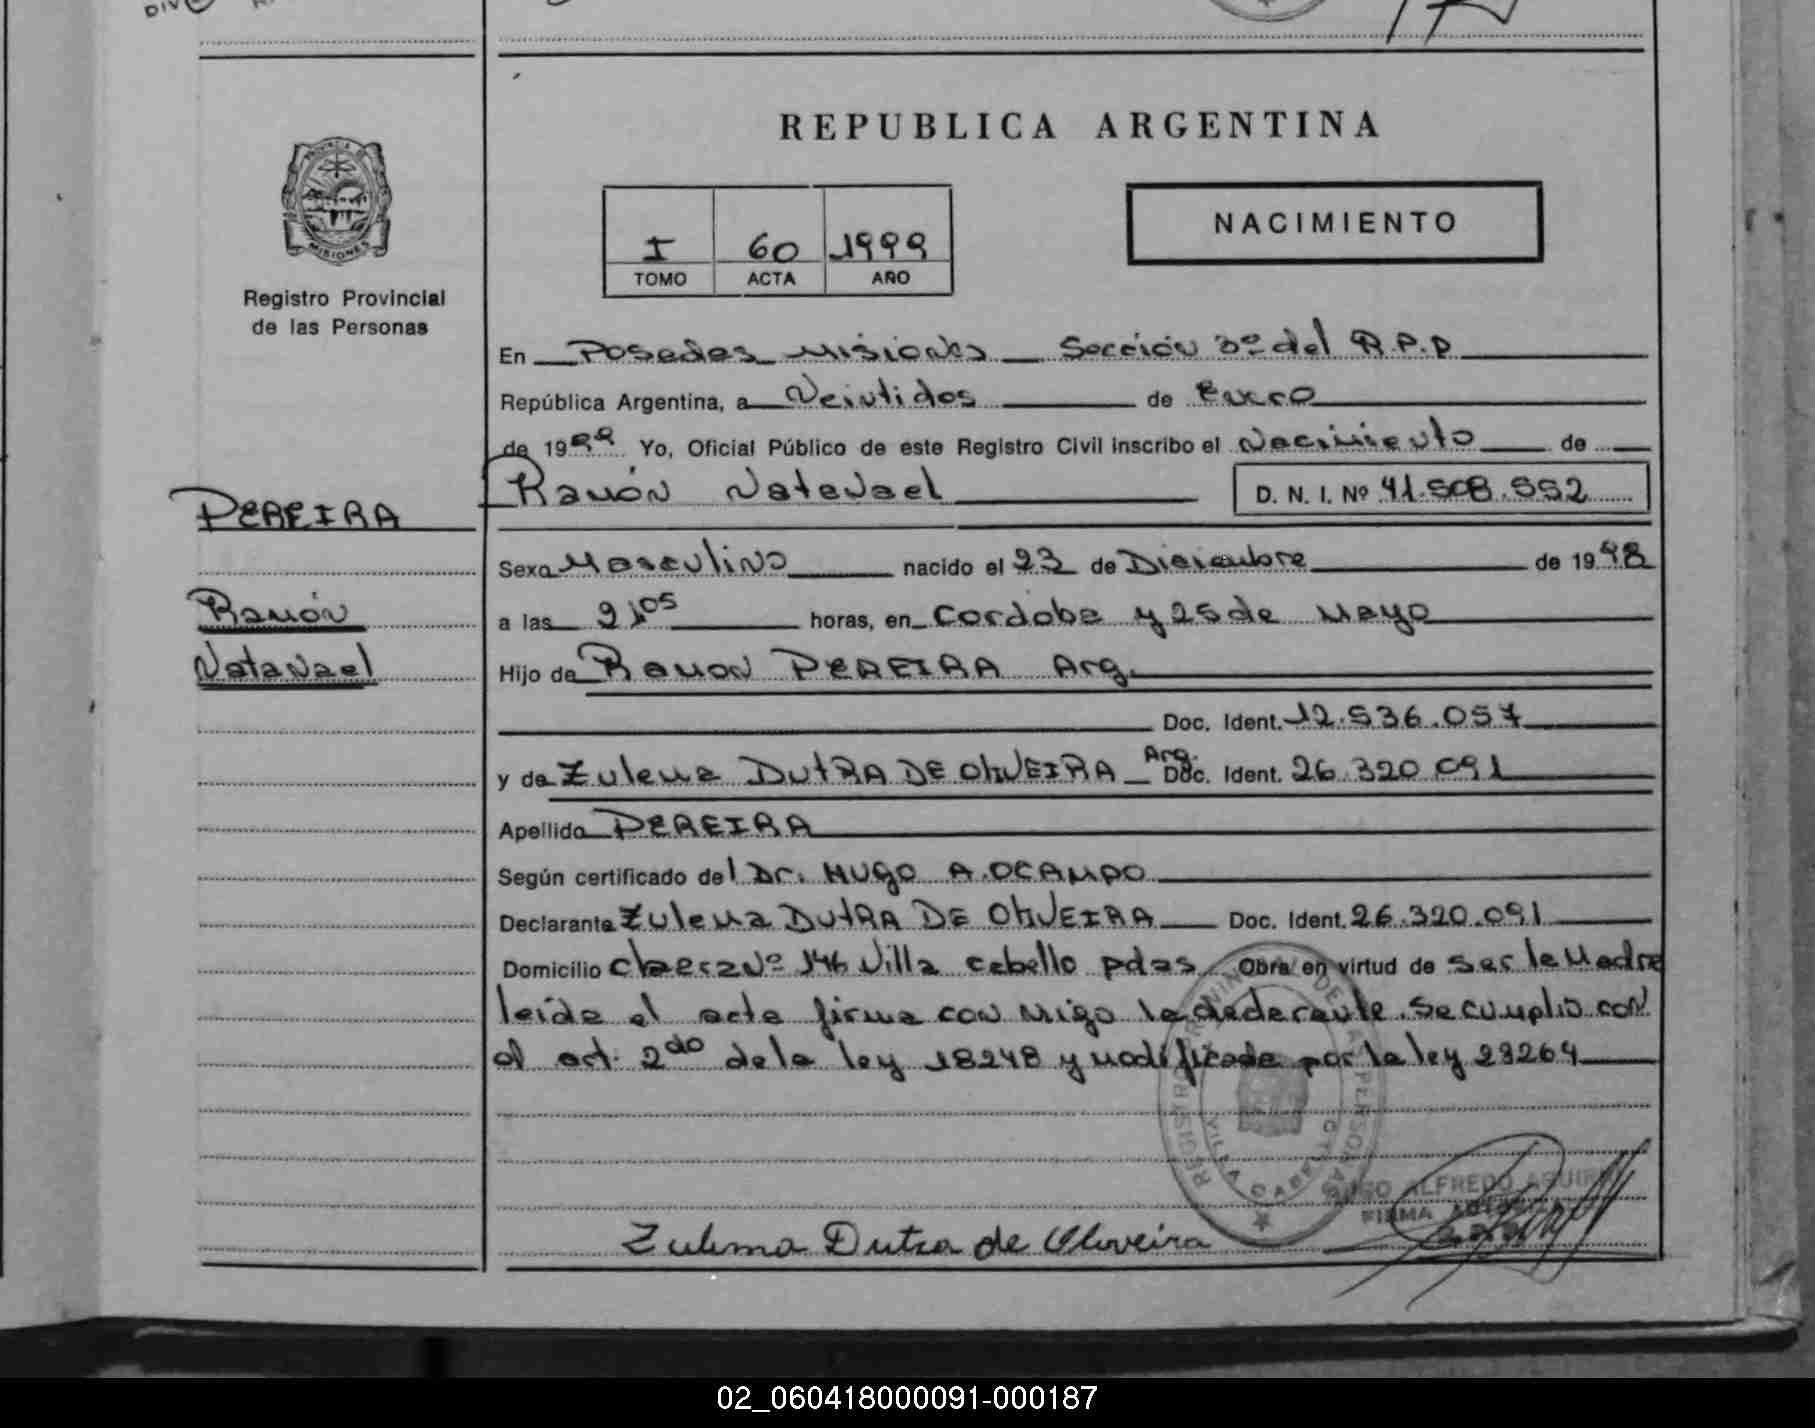 REPUBLICA ARGENTINA
PROVINCIA DE
MISIONES
Registro Provincial
de las Personas
NACIMIENTO
I 60 1999
TOMO ACTA AÑO
En Posadas Misiones Sección 3º del R.P.P
República Argentina, a Veintidos de Enero
de 1999 Yo, Oficial Público de este Registro Civil inscribo el Nacimiento de
Ramón Natanael D. N. I. Nº 41.508.552
PEREIRA
Sexo Masculino nacido el 23 de Diciembre de 1998
Ramón
a las 21,05 horas, en Cordoba y 25 de Mayo
Natanael
Hijo de Ramon PEREIRA Arg.
Doc. Ident. 12.536.057
y de Zulema DUTRA DE OliVEIRA Arg. Doc. Ident. 26.320.091
Apellido PEREIRA
Según certificado del Dr. HUgo A. OCAMPO
Declarante Zulema DUTRA DE OliVEIRA Doc. Ident. 26.320.091
Domicilio Nº 146 Villa cabello pdas Obra en virtud de ser la Madre
leida el acta firma con migo la declarante. Se cumplio con
el art. 2do de la ley 18248 y modificada por la ley 23264
VILLA CABELLO
ALFREDO AGUIRRE
FIRMA
Zulema Dutra de Oliveira
02_060418000091-000187